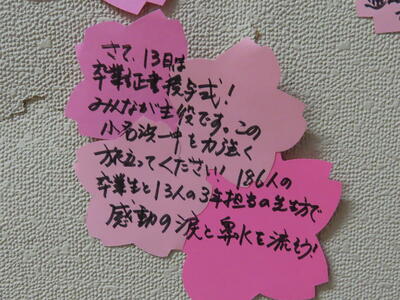 さて、13日は
卒業証書授与式!
みんなが主役です。この
小名浜一中を力強く
旅立ってください! 186人の
卒業生と13人の3年担当の先生方で
感動の涙と鼻水を流そう!